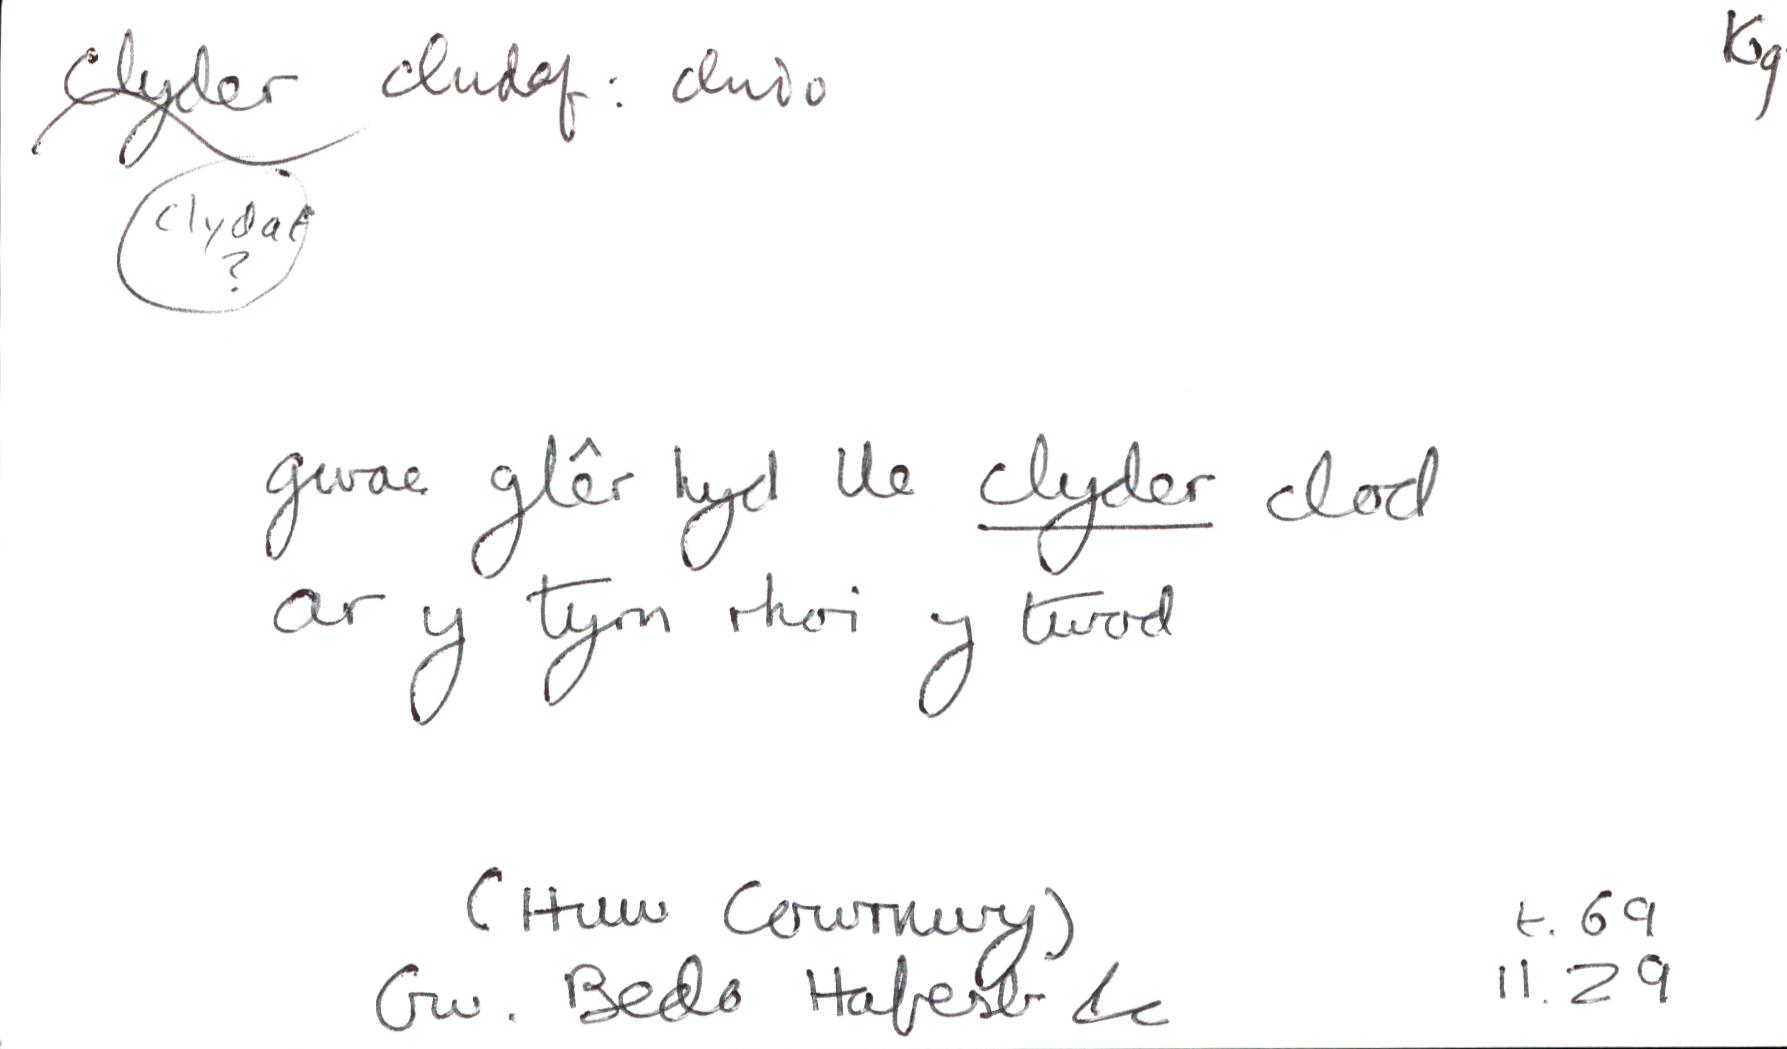 clyder cludaf: cludo Kg
clydaf
?
gwae glêr hyd lle clyder clod
ar y tym rhoi y twod
(Huw Cowrnwy) t. 69
Gw. Bedo Hafesb &c ll. 29